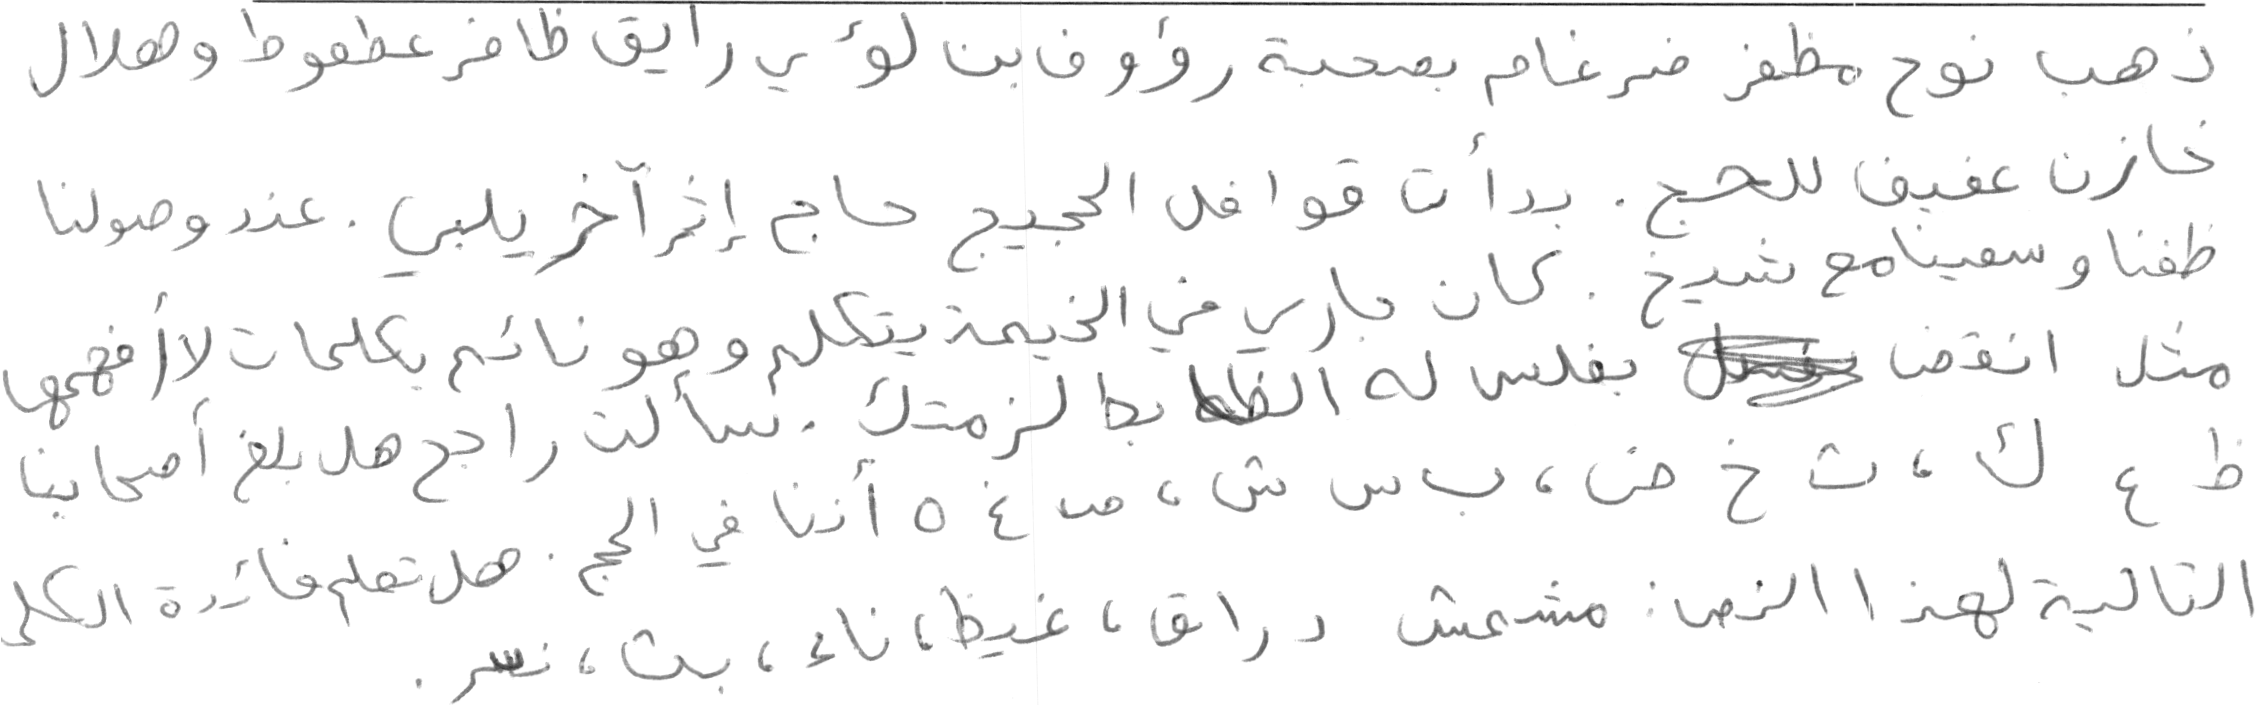 ذهب نوح مظفر ضرغام بصحبة رؤوف بن لؤي رايق ظافر عطعوط وهلال
خازن عفيف للحج . بدأت قوافل الحجيج حاج إثر آخر يلبي . عند وصولنا
طفنا وسعينا مع شيخ . كان جاري في الخيمة يتكلم وهو نائم بكلمات لا أفهمها
مثل انقضا بفلس له الظابط لزمتك . سألت راجح هل بلغ أصحابنا
ظ ع ك ، ث خ ض ، ب س ش ، ص غ ه أننا في الحج . هل تعلم فائدة الكلم
التالية لهذا النص : مشمش دراق ، غيظ ، ناء ، بث ، نسر .